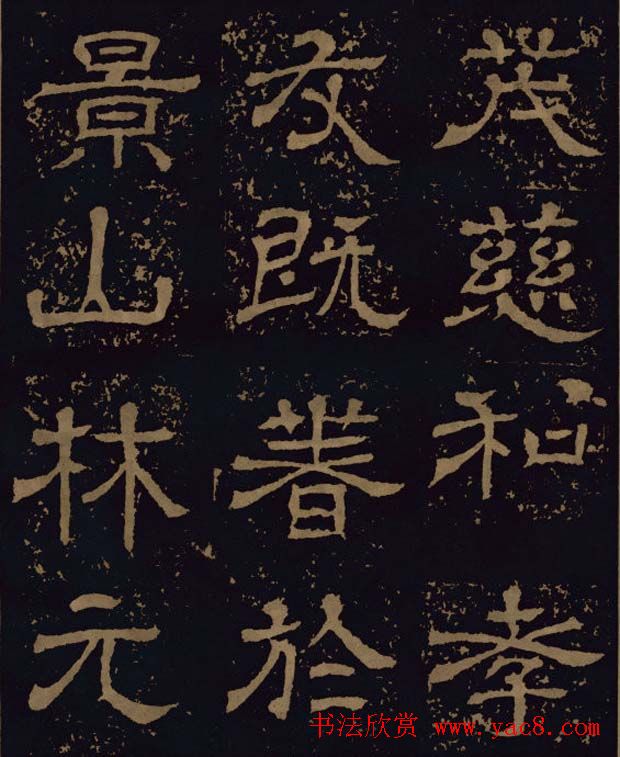 茂慈和孝
友既著於
景山林元
书法欣赏 www.yac8.com